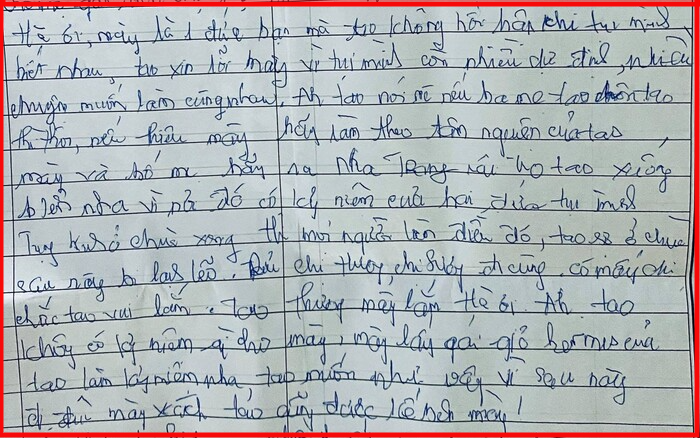 Hà ơi, mày là 1 đứa bạn mà tao không hối hận khi tụi mình
biết nhau, tao xin lỗi mày vì tụi mình còn nhiều dự định, nhiều
chuyện muốn làm cùng nhau. Ah tao nói mẹ nếu ba mẹ tao chôn tao
thì thôi, nếu thiêu mày hãy làm theo tâm nguyện của tao,
mày và bố mẹ hãy ra nha Trang rải tro tao xuống
biển nha vì nơi đó có kỷ niệm của hai đứa tụi mình
chùa xong thì mọi người lên điền đó, tao sẽ ở chùa
sau này lẽo. chị thủy, chị đi cùng. có mấy chị
chắc tao vui lắm. tao thương mày lắm Hà ơi. Ah tao
không có kỷ niệm gì cho mày, mày lấy cái giỏ hermes của
tao làm kỷ niệm nha tao muốn như vậy vì sau này
đi đâu mày xách tao cũng được kề bên mày!